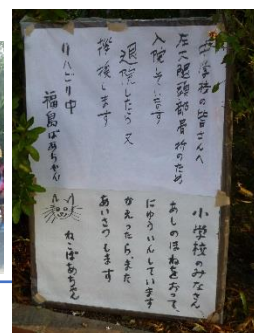 中学校の皆さんへ
左大腿頭部骨折のため
入院しています
退院したら又
挨拶します
リハビリ中
福島ばあちゃん
小学校のみなさん
あしのほねをおって、
にゅういんしています
かえったら、また
あいさつします
ねこばあちゃん